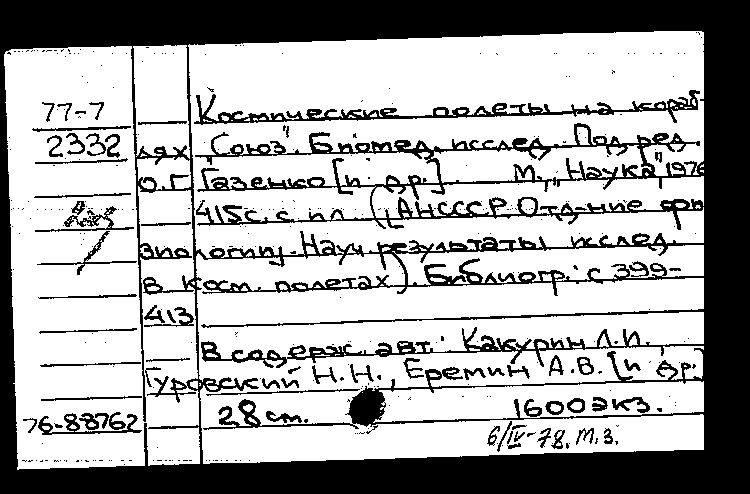 77-7
2332
Космические полеты на кораб-
лях "Союз". Биомед. исслед. Под ред.
О.Г. Газенко [и др.] М., "Наука", 1976
415 с. с ил. ([АН СССР. Отд-ние фи
зиологии]. Науч. результаты исслед.
в косм. полетах). Библиогр.: с 399-
413
В содерж. авт.: Какурин Л.И.,
Гуровский Н.Н., Еремин А.В. [и др.]
76-88762
28 ст. 1600 экз.
6/IV-78. т. 3.